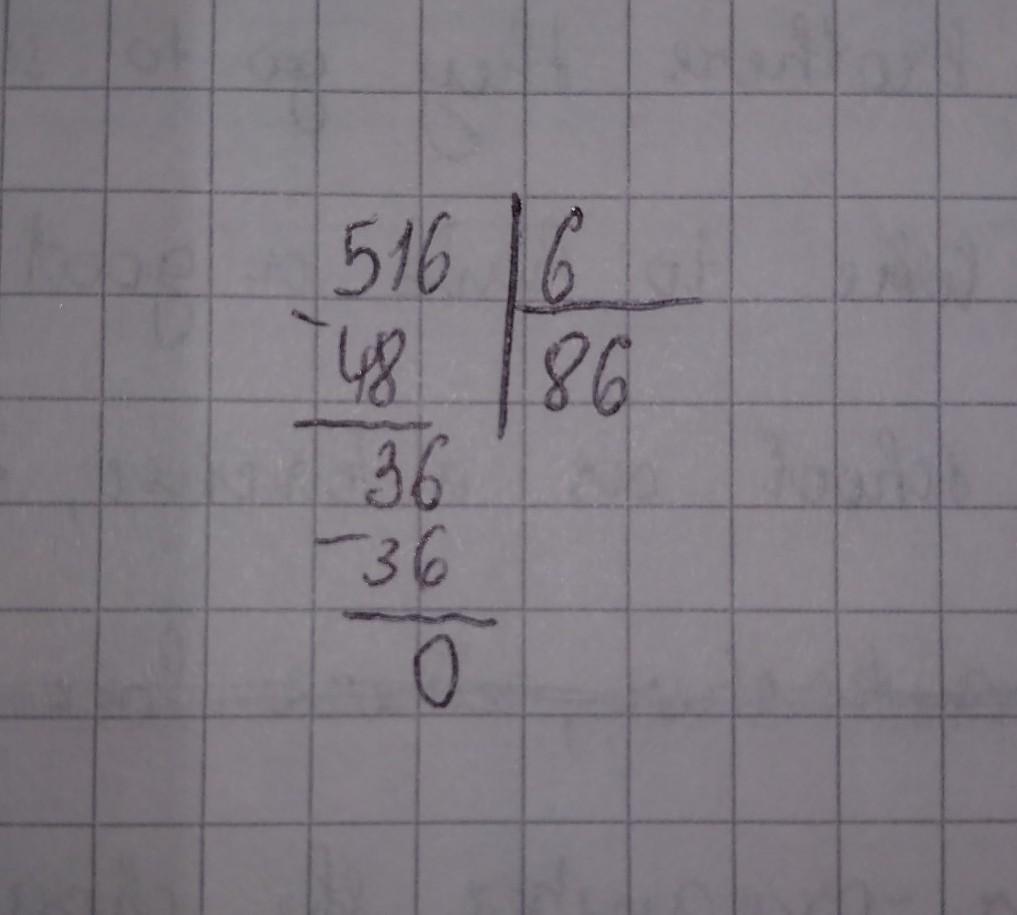 516 6
-48 86
36
-36
0